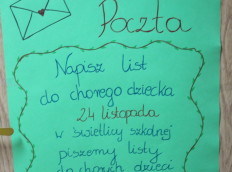 Poczta
Napisz list
do chorego dziecka
24 listopada
w świetlicy szkolnej
piszemy listy
do chorych dzieci